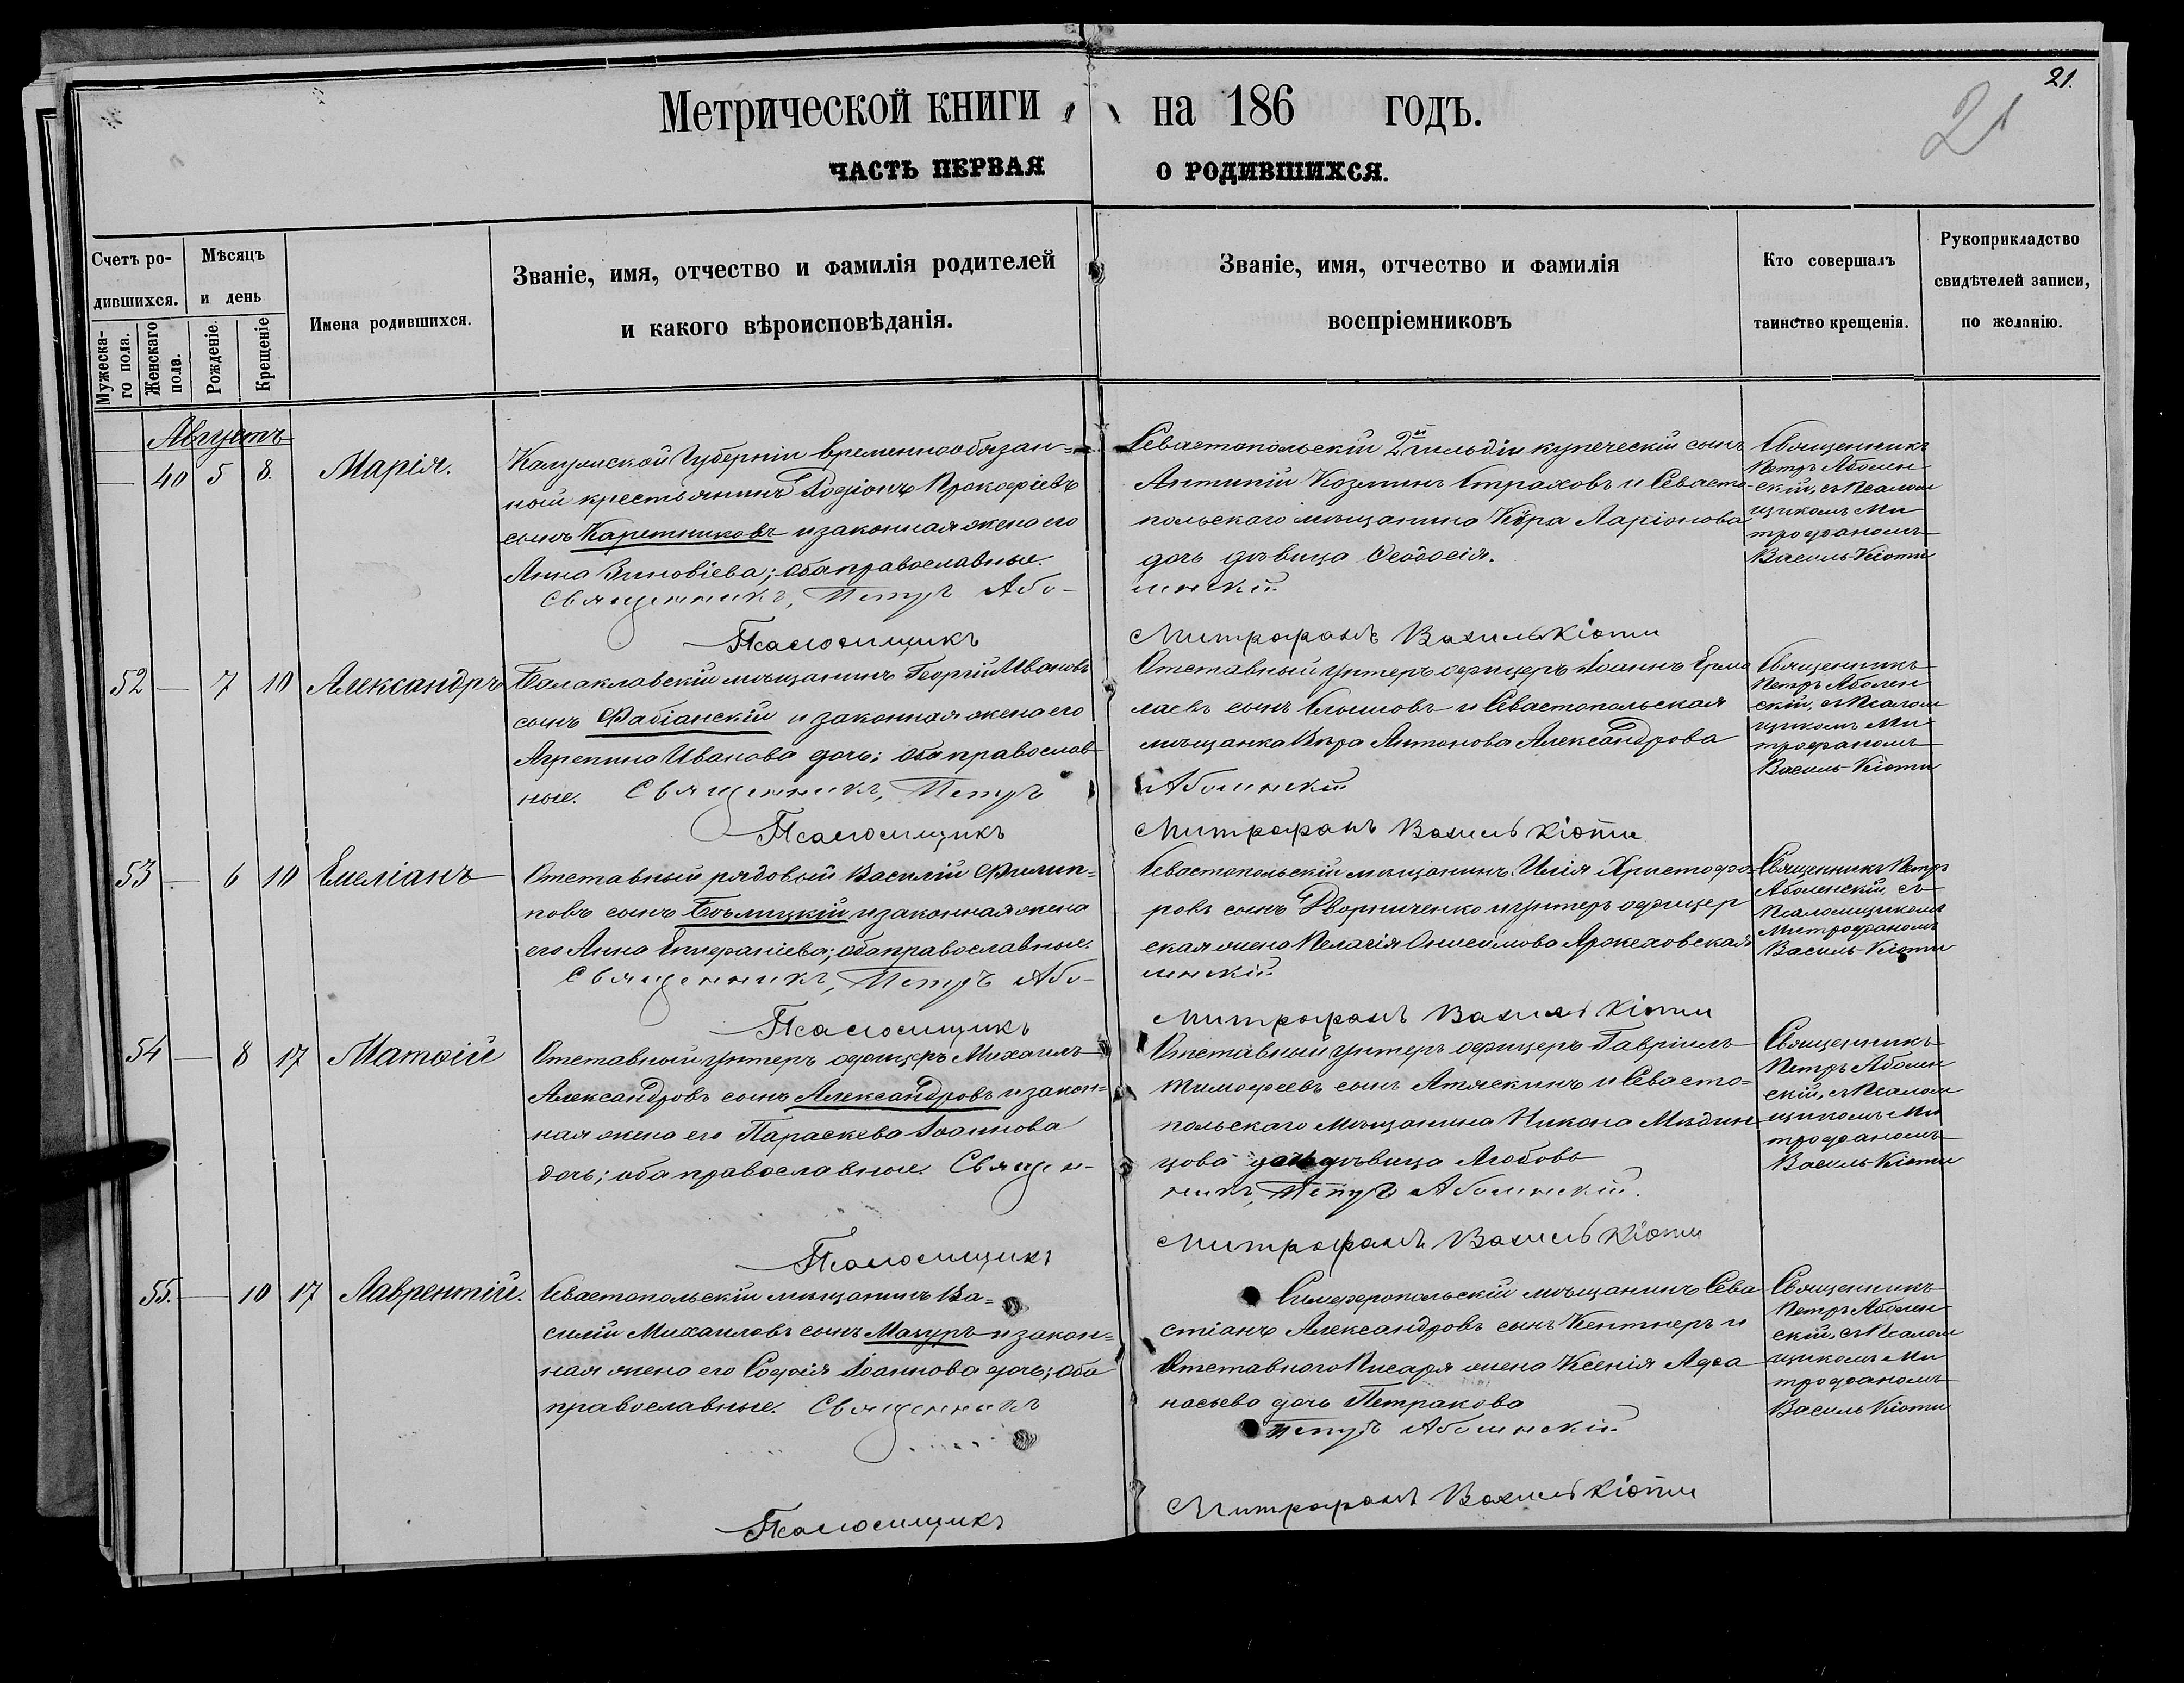 21.
21
Метрической книги на 186 годъ.
ЧАСТЬ ПЕРВАЯ О РОДИВШИХСЯ.
Счетъ ро-
дившихся.
Мужеска-
го пола.
Женскаго
пола.
Мѣсяцъ
и день
Рожденіе.
Крещеніе
Имена родившихся.
Званіе, имя, отчество и фамилія родителей
и какого вѣроисповѣданія.
Званіе, имя, отчество и фамилія
воспріемниковъ
Кто совершалъ
таинство крещенія.
Рукоприкладство
свидѣтелей записи,
по желанію.
Августъ
40 5 8. Марія.
Калужской Губерніи временнообязан-
ный крестьянинъ Родіонъ Прокофіевъ
сынъ Каретниковъ и законная жена его
Анна Зиновіева; оба православные.
Севастопольскій 2й гильдіи купеческій сынъ
Антипій Козминъ Страховъ и Севасто-
польскаго мѣщанина Кира Ларіонова
дочь дѣвица Ѳеодосія.
Священникъ
Петръ Аболен
скій, съ Псалом
щикомъ Ми
трофаномъ
Василь-Кіоти
Священникъ, Петръ Або-
ленскій
Псаломщикъ Митрофанъ Василькіоти
52 — 7 10 Александръ
Балаклавскій мѣщанинъ Георгій Ивановъ
сынъ Фабіанскій и законная жена его
Агрепина Иванова дочь; оба православ
ные.
Отставный унтеръ офицеръ Іоаннъ Ермо
лаевъ сынъ и Севастопольская
мѣщанка Вѣра Антонова Александрова
Священникъ
Петръ Аболен
скій, съ Псалом
щикомъ Ми
трофаномъ
Василь-Кіоти
Священникъ, Петръ Аболенскій
Псаломщикъ Митрофанъ Василькіоти
53 — 6 10 Емеліанъ
Отставный рядовый Василій Филип-
повъ сынъ Бѣлицкій и законная жена
его Анна Епифаніева; оба православные.
Севастопольскій мѣщанинъ Илія Христофо
ровъ сынъ Дворниченко и унтеръ офицер
ская жена Пелагія Онисимова Аржеховская
Священникъ Петръ
Аболенскій, съ
Псаломщикомъ
Митрофаномъ
Василь-Кіоти
Священникъ, Петръ Або-
ленскій
Псаломщикъ Митрофанъ Василькіоти
54 — 8 17 Матѳій
Отставный унтеръ офицеръ Михаилъ
Александровъ сынъ Александровъ и закон-
ная жена его Параскева Іоаннова
дочь; оба православные.
Отставный унтеръ офицеръ Гавріилъ
Тимофеевъ сынъ Атяскинъ и Севасто-
польскаго мѣщанина Никона
цова дочь дѣвица Любовь
Священникъ
Петръ Аболен
скій, съ Псалом
щикомъ Ми
трофаномъ
Василь-Кіоти
Священ-
никъ, Петръ Аболенскій.
Псаломщикъ Митрофанъ Василькіоти
55. — 10 17 Лаврентій.
Севастопольскій мѣщанинъ Ва-
силій Михаиловъ сынъ Мазуръ и закон-
ная жена его Софія Іоаннова дочь; оба
православные.
Симферопольскій мѣщанинъ Сева
стіанъ Александровъ сынъ Кентнеръ и
Отставного Писаря жена Ксенія Афа
насьева дочь Петракова
Священникъ
Петръ Аболен
скій, съ Псалом
щикомъ Ми
трофаномъ
Василь Кіоти
Священникъ Петръ Аболенскій
Псаломщикъ Митрофанъ Василькіоти